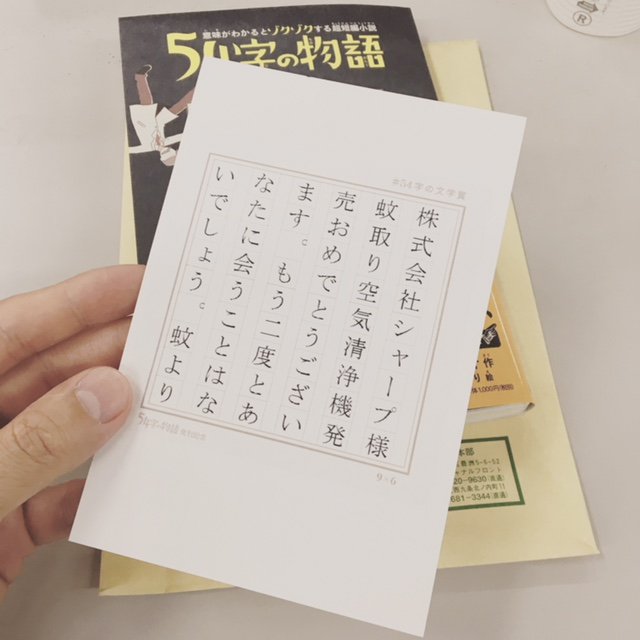 意味がわかるとゾクゾクする超短編小説
54字の物語
#54字の文学賞
株式会社シャープ様
蚊取り空気清浄機発
売おめでとうござい
ます。もう二度とあ
なたに会うことはな
いでしょう。蚊より
54字の物語
9×6
作
絵
1,000円(税別)
本部
5-5-52
ャナルフロント
20-9630(直通)
西九条北ノ内町11
681-3344(直通)
®